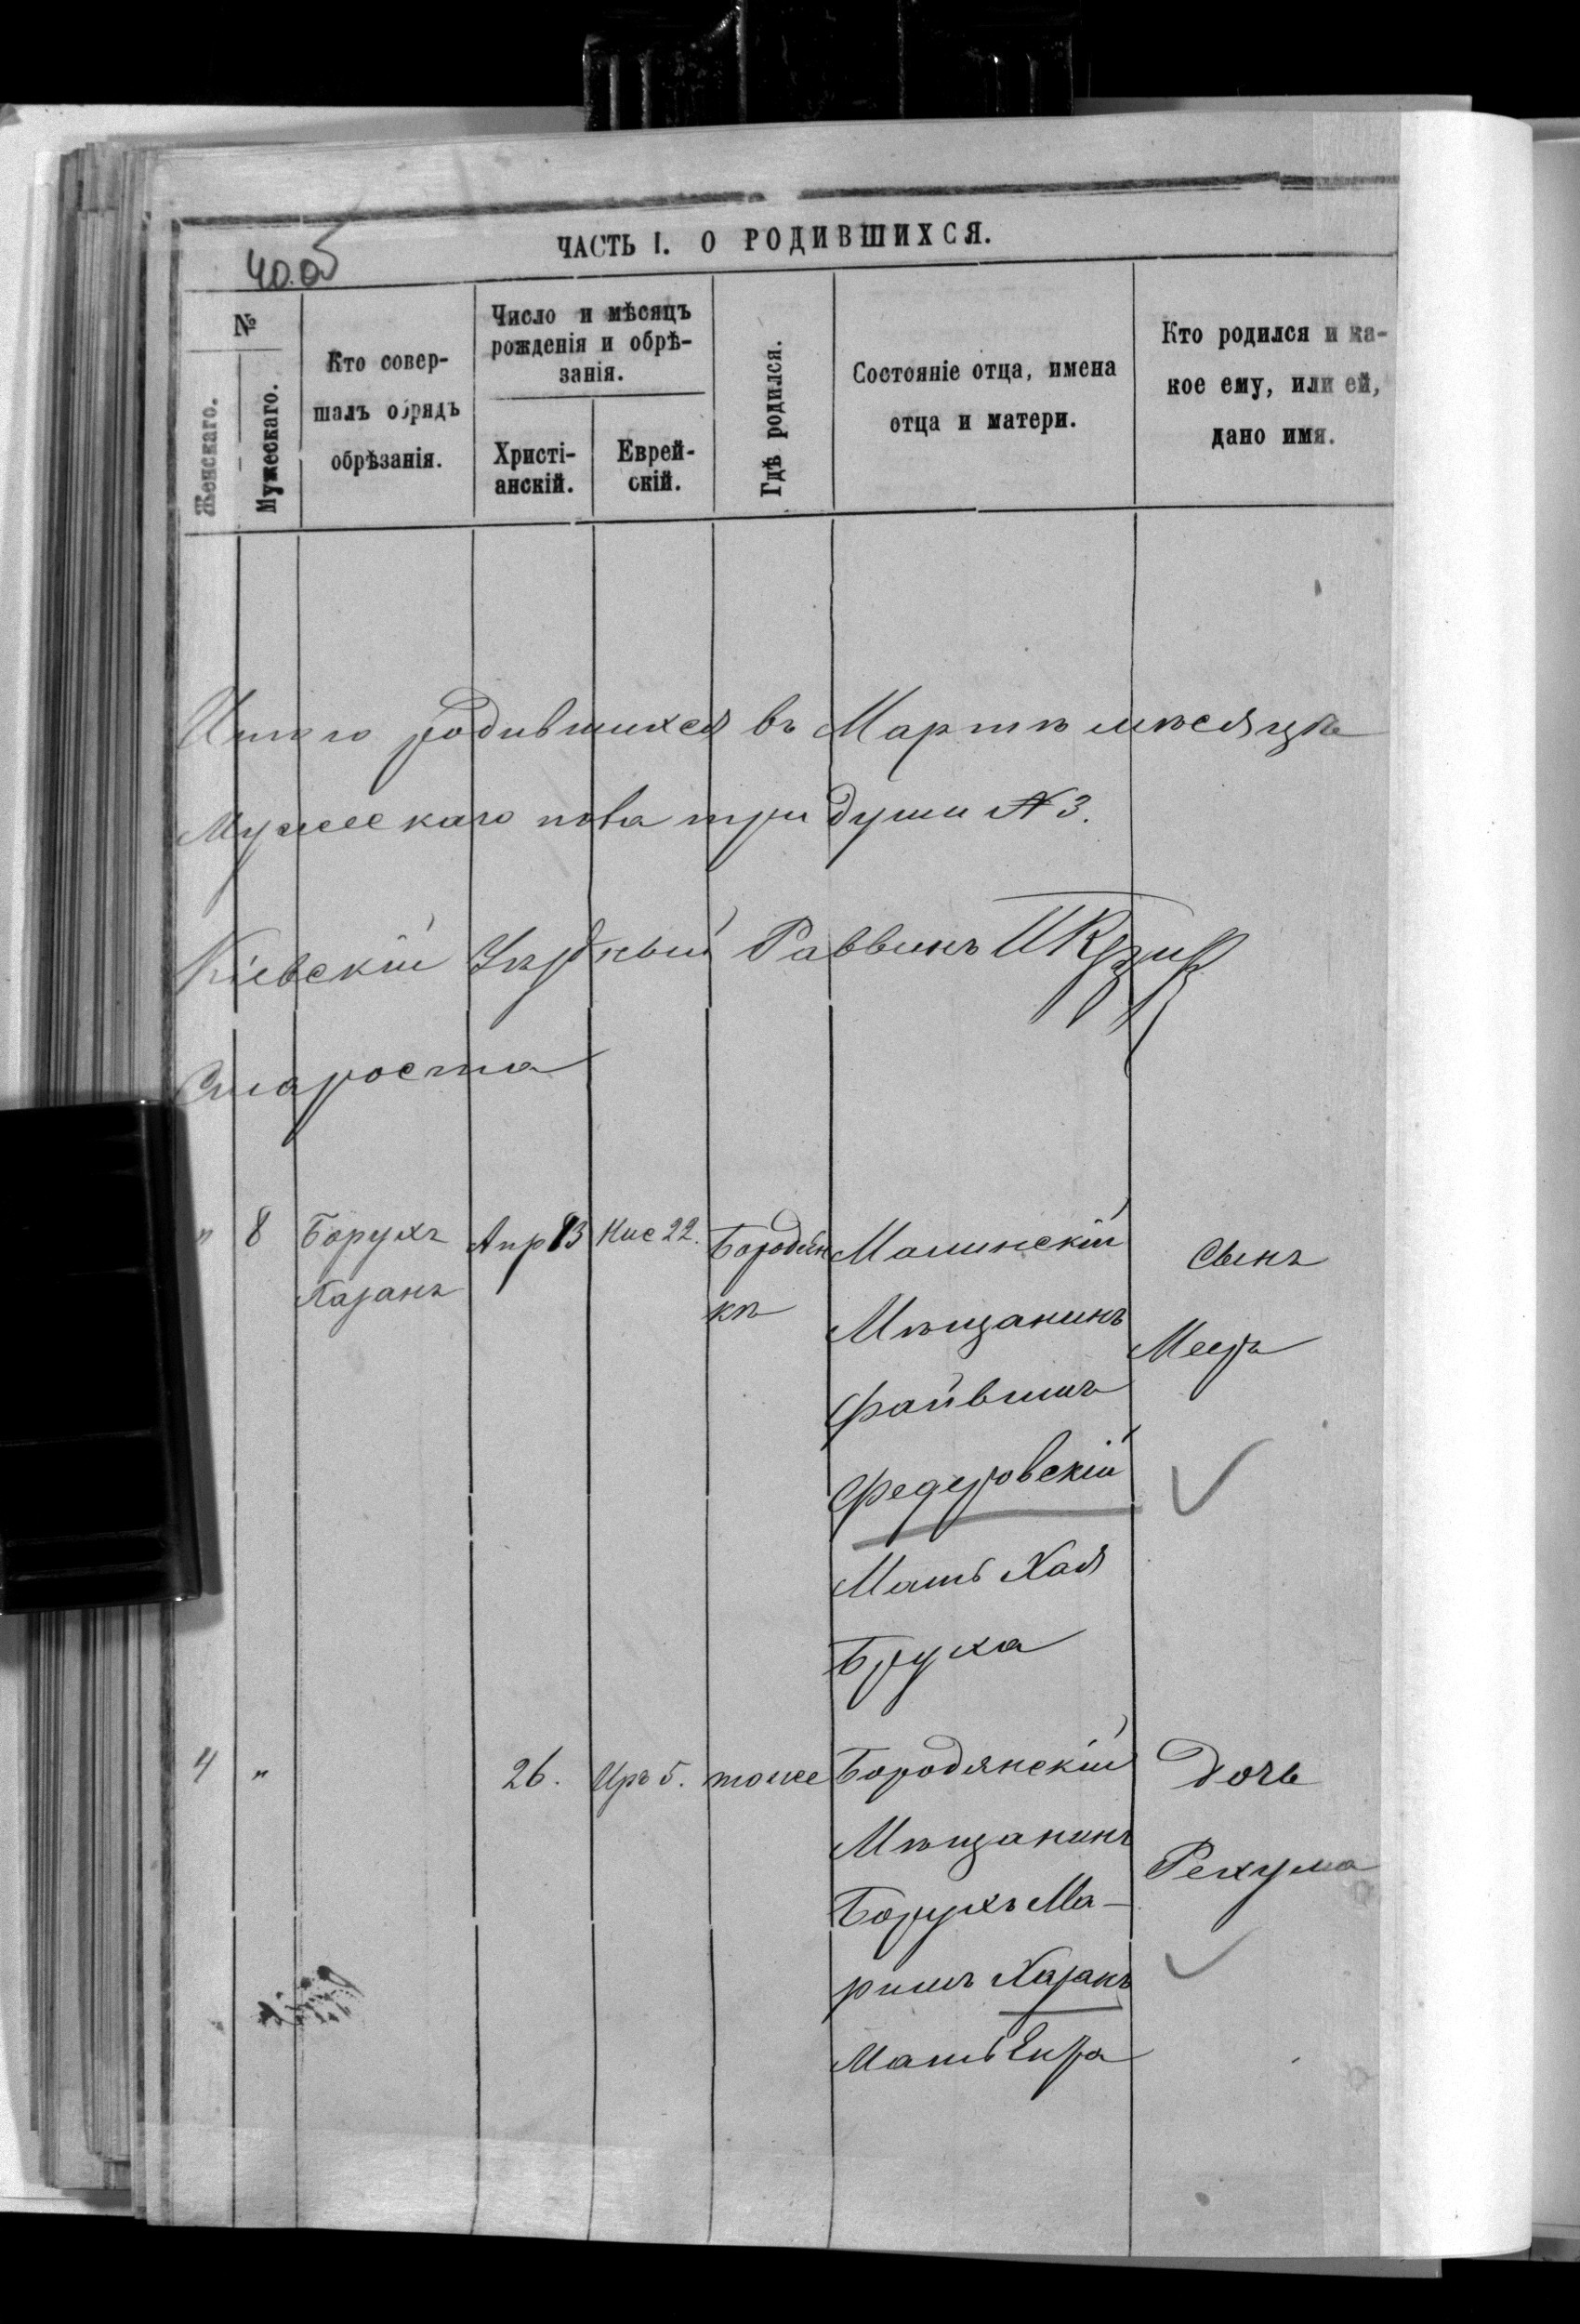 40.об
ЧАСТЬ I. О РОДИВШИХСЯ.
№
Женскаго.
Мужескаго.
Кто совер-
шалъ обрядъ
обрѣзанія.
Число и мѣсяцъ
рожденія и обрѣ-
занія.
Христі-
анскій.
Еврей-
скій.
Гдѣ родился.
Состояніе отца, имена
отца и матери.
Кто родился и ка-
кое ему, или ей,
дано имя.
Итого родившихся въ Мартѣ мѣсяцѣ
Мужескаго пола три души № 3.
Кіевскій Уѣздный Раввинъ
Староста
" 8
Борухъ
Хазанъ
Апр 13
Нис 22.
Бородян
кѣ
Малинскій
Мѣщанинъ
Файвишъ
Федеровскій
Мать Хая
Бруха
Сынъ
Мееръ
4 "
26.
Иръ 5.
тоже
Бородянскій
Мѣщанинъ
Борухъ Ма-
ришъ Хазанъ
Мать
Дочь
Рехума